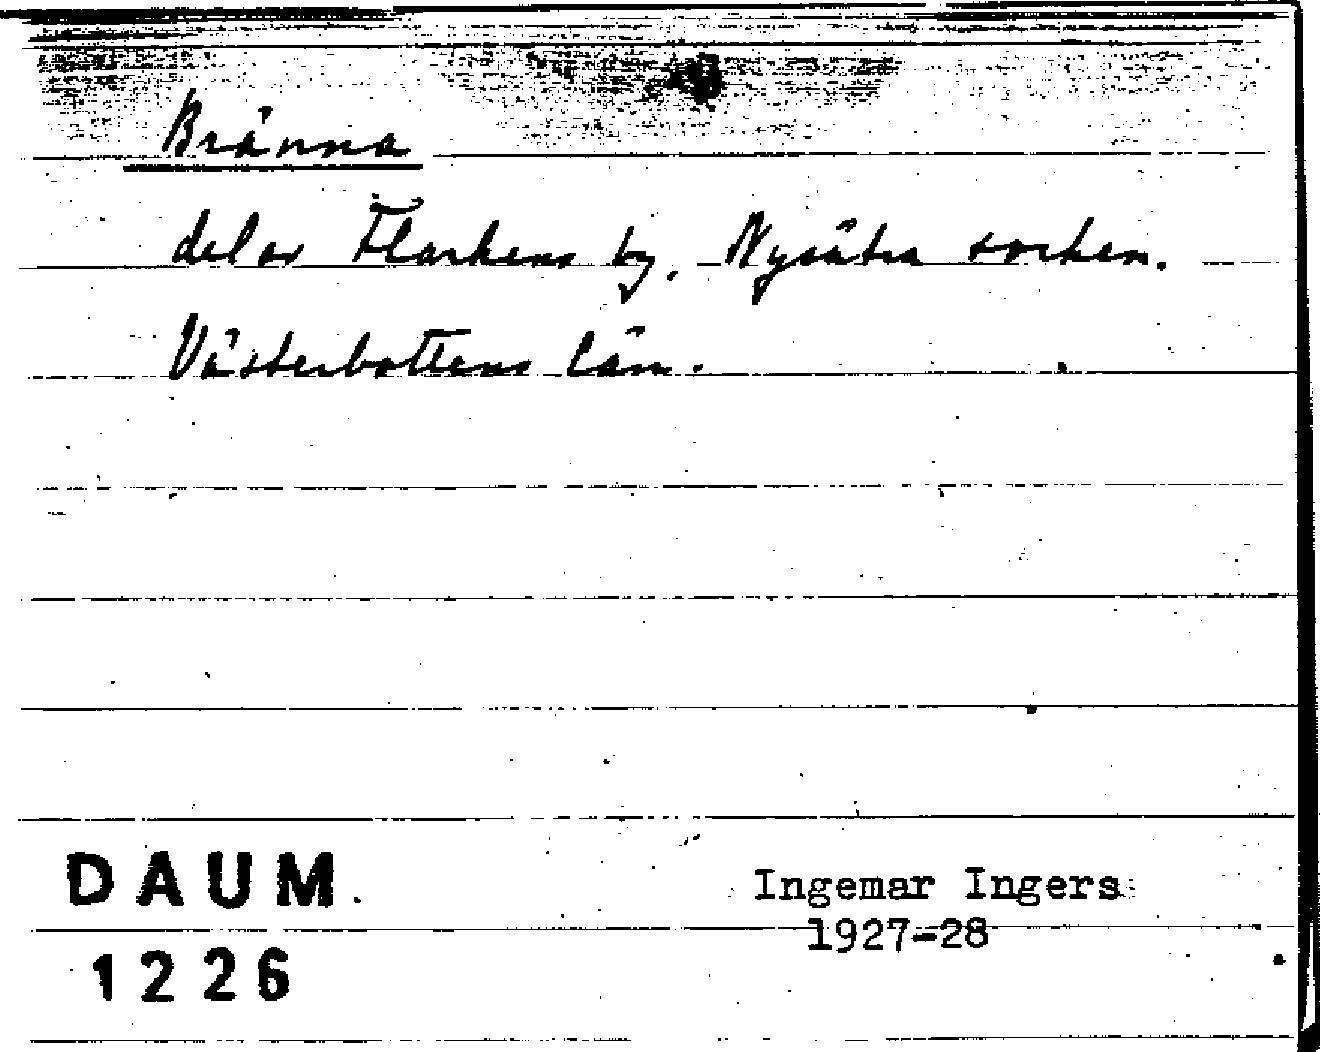 Bränna
del av Flarkens by, Nysätra socken.
Västerbottens län.
DAUM
1226
Ingemar Ingers
1927-28